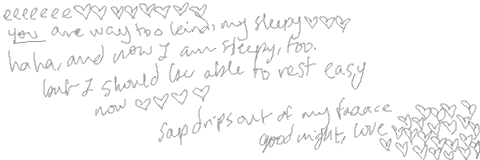 eeeeeee♡♡♡♡♡♡♡
you are way too kind, my sleepy♡♡♡
haha, and now I am sleepy, too.
but I should be able to rest easy
now ♡♡♡♡
sap drips out of my faaace
good night, love ♡♡♡♡♡♡♡♡